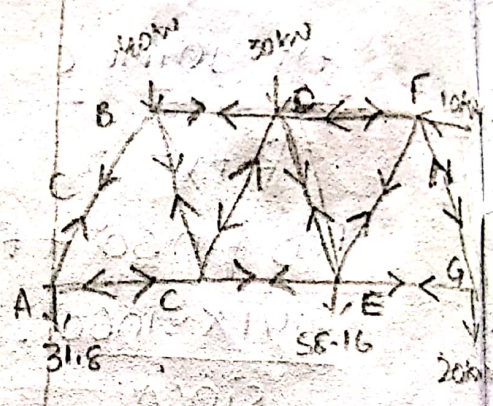 40kN 30kN
B D F 10kN
C
A C E G
31.8 58.16 20kN